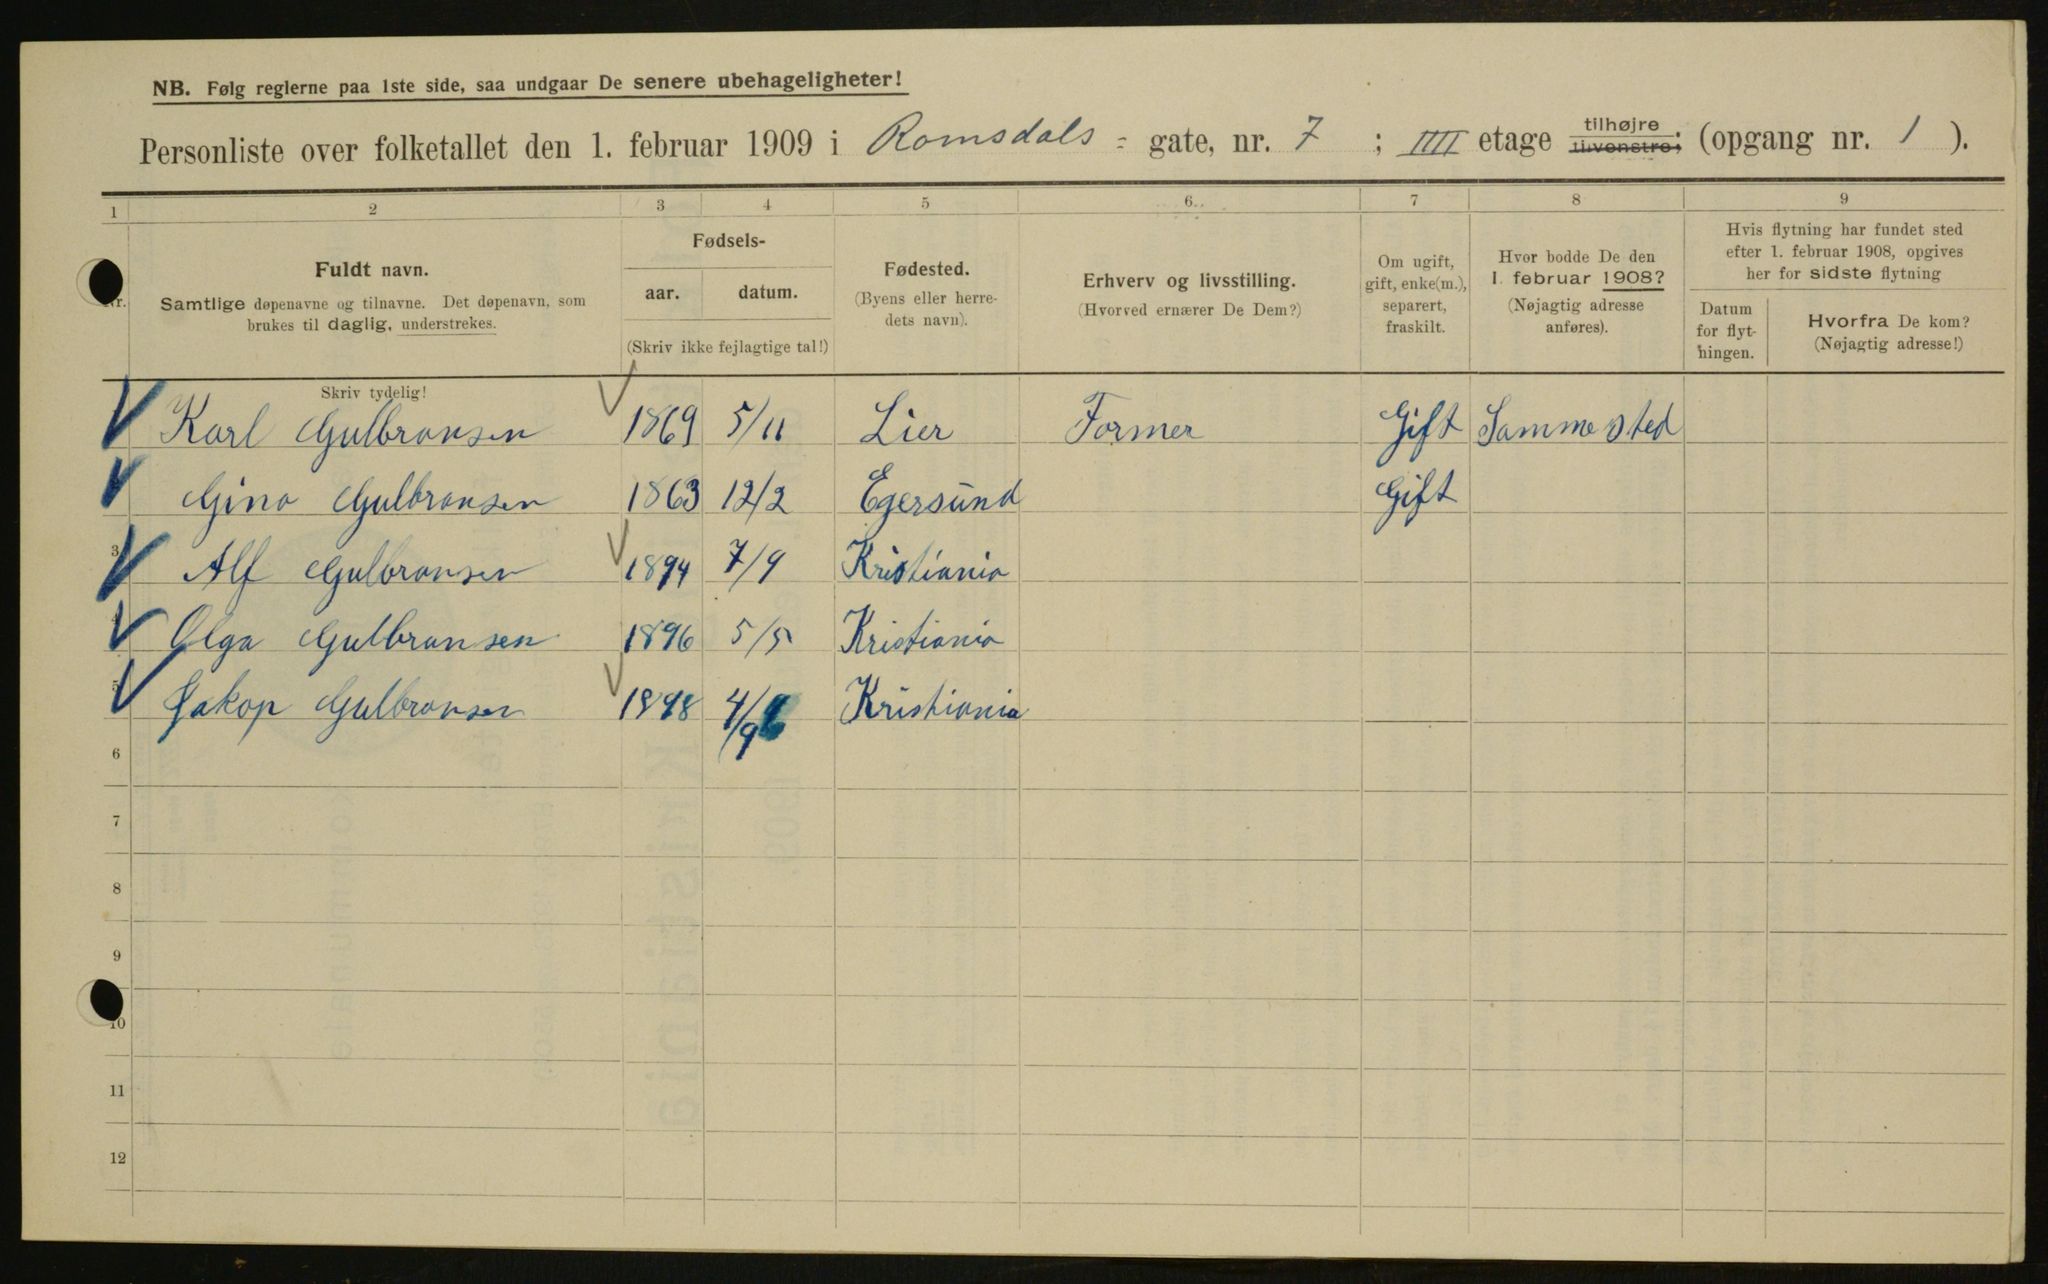 NB. Følg reglerne paa 1ste side, saa undgaar De senere ubehageligheter!
Personliste over folketallet den 1. februar 1909 i Romsdals - gate, nr. 7 ; IIII etage tilhøjre tilvenstre; (opgang nr. 1 ).
1 2 3 4 5 6. 7 8 9
Nr.
Fuldt navn.
Samtlige døpenavne og tilnavne. Det døpenavn, som
brukes til daglig, understrekes.
Fødsels-
aar. datum.
(Skriv ikke fejlagtige tal!)
Fødested.
(Byens eller herre-
dets navn).
Erhverv og livsstilling.
(Hvorved ernærer De Dem?)
Om ugift,
gift, enke(m.),
separert,
fraskilt.
Hvor bodde De den
1. februar 1908?
(Nøjagtig adresse
anføres).
Hvis flytning har fundet sted
efter 1. februar 1908, opgives
her for sidste flytning
Datum
for flyt-
ningen.
Hvorfra De kom?
(Nøjagtig adresse!)
Skriv tydelig!
Karl Gulbransen 1869 5/11 Lier Former Gift Samme sted
Gina Gulbransen 1863 12/2 Egersund Gift
3 Alf Gulbransen 1894 7/9 Kristiania
4 Olga Gulbransen 1896 5/5 Kristiania
5 Jakop Gulbransen 1898 4/9 Kristiania
6
7
8
9
10
11
12